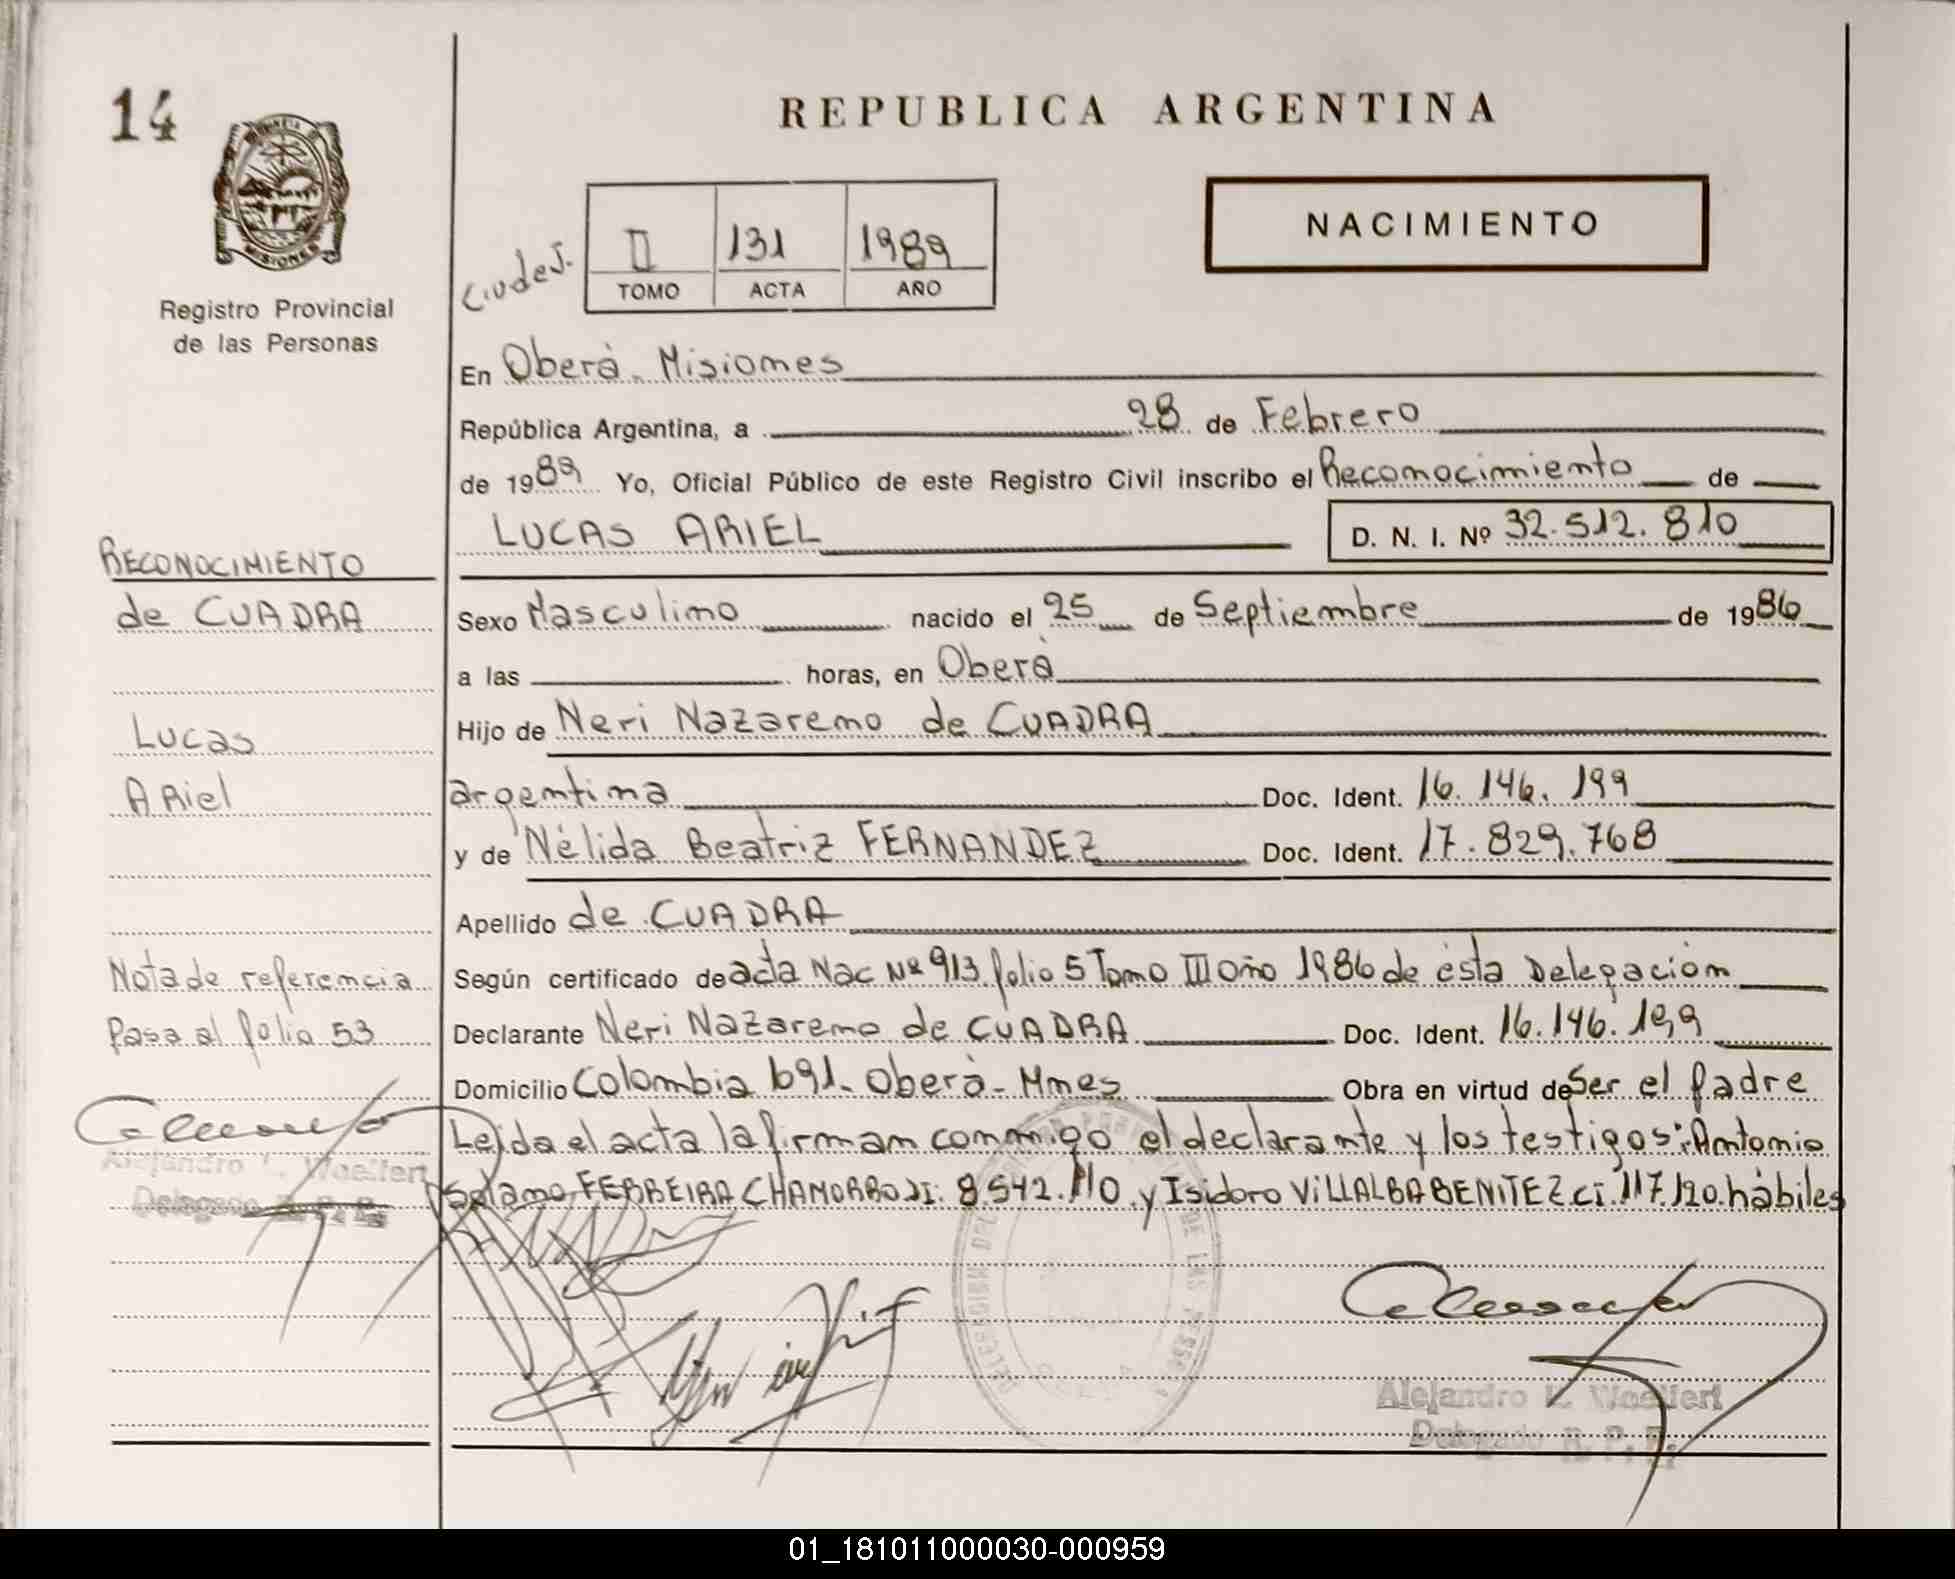 14
REPUBLICA ARGENTINA
NACIMIENTO
MISIONES
Registro Provincial
de las Personas
Ciudad.
II 131 1989
TOMO ACTA AÑO
En Oberà. Misiones
República Argentina, a 28 de Febrero
de 1989 Yo, Oficial Público de este Registro Civil inscribo el Reconocimiento de
LUCAS ARIEL D. N. I. Nº 32.512.810
Sexo Masculino nacido el 25 de Septiembre de 1986
a las horas, en Oberà
Hijo de Neri Nazareno de CUADRA
argentina Doc. Ident. 16.146.199
y de Nélida Beatriz FERNANDEZ Doc. Ident. 17.829.768
Apellido de CUADRA
Según certificado de acta Nac Nº 913 folio 5 Tomo III año 1986 de ésta Delegación
Declarante Neri Nazareno de CUADRA Doc. Ident. 16.146.199
Domicilio Colombia 691- Oberà- Mnes Obra en virtud de Ser el Padre
Leida el acta la firman conmigo el declarante y los testigos: Antonio
Solano FERREIRA CHAMORRO DI: 8.542.110 y Isidoro VILLALBA BENITEZ CI. 117.120. hàbiles
RECONOCIMIENTO
de CUADRA
Lucas
Ariel
Nota de referencia
Pasa al folio 53
Alejandro L. Woelfert
Delegado R. P. P.
Alejandro L. Woelfert
Delegado R. P. P.
01_181011000030-000959